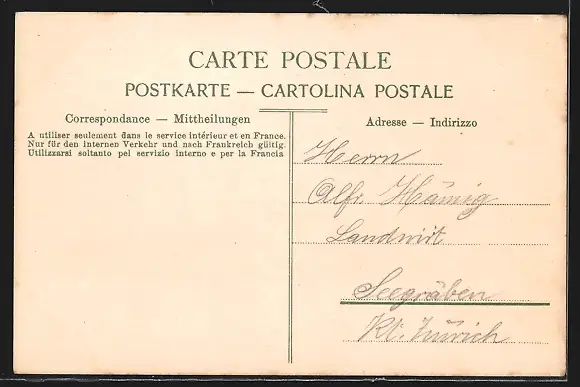 CARTE POSTALE
POSTKARTE — CARTOLINA POSTALE
Correspondance — Mittheilungen
A utiliser seulement dans le service intérieur et en France.
Nur für den internen Verkehr und nach Frankreich gültig.
Utilizzarsi soltanto pel servizio interno e per la Francia
Adresse — Indirizzo
Herrn
Alfr. Hämig
Landwirt
Seegräben
Kt. Zürich